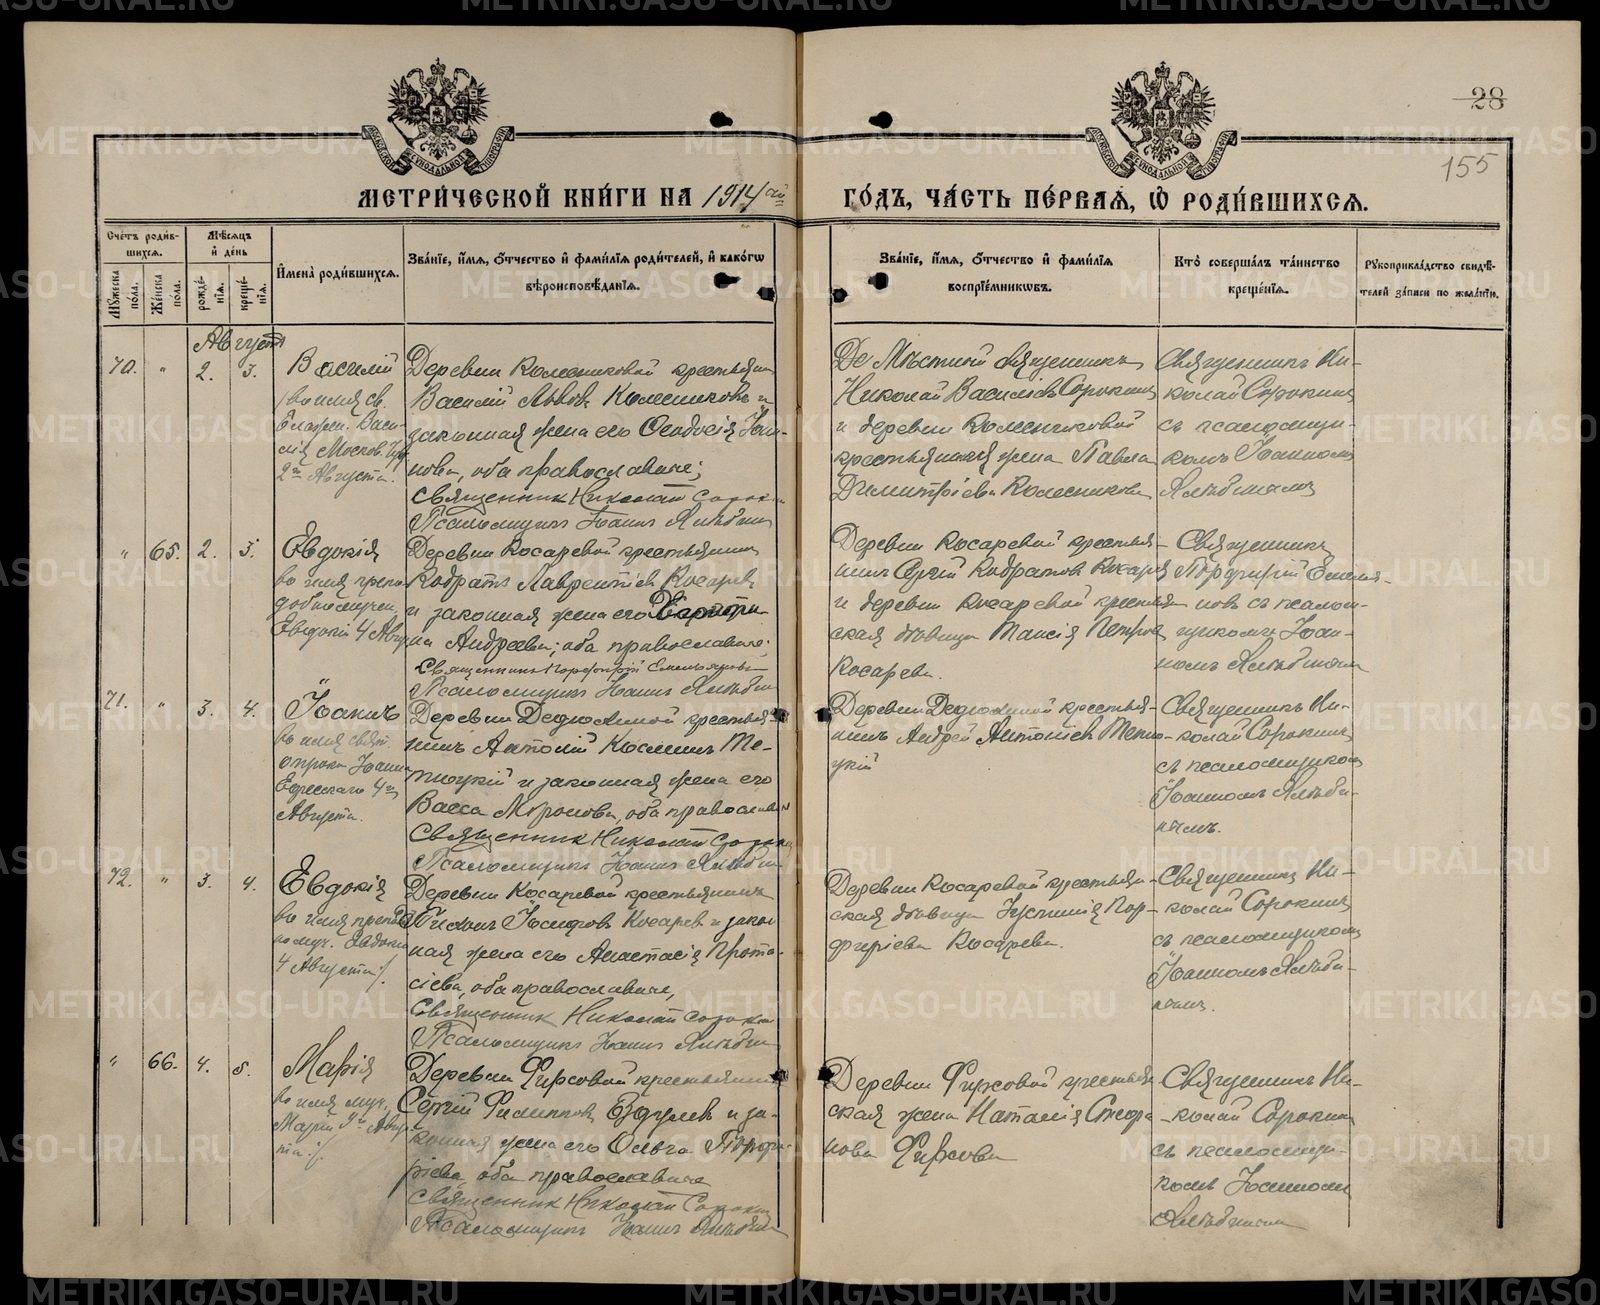 28
155
МОСКОВСКОЙ СѴНОДАЛЬНОЙ ТИПОГРАФІИ
МОСКОВСКОЙ СѴНОДАЛЬНОЙ ТИПОГРАФІИ
МЕТРИ́ЧЕСКОЙ КНИ́ГИ НА 1914 ый
ГО́ДЪ, ЧА́СТЬ ПЕ́РВАЯ, Ѡ РОДИ́ВШИХСЯ.
Сче́тъ роди́в-
шихся.
Му́жеска по́ла.
Же́нска по́ла.
Мѣ́сяцъ
и҆ де́нь
рожде́-
нїя.
креще́-
нїя.
И҆мена̀ роди́вшихся.
Зва́нїе, и҆́мя, ѻ҆́тчество и҆ фами́лїя роди́телей, и҆ како́гѡ
вѣроисповѣ́данїя.
Зва́нїе, и҆́мя, ѻ҆́тчество и҆ фами́лїя
воспрїе́мникѡвъ.
Кто̀ соверша́лъ та́инство
креще́нїя.
Рꙋкоприкла́дство свидѣ́-
телей за́писи по жела́нїю.
Августъ
70. " 2. 3.
Василій
во имя св.
блажен. Васи-
лія Москов. чуд.
2го Августа.
Деревни Колесниковой крестьянин
Василій Львовъ Колесниковъ и
законная жена его Ѳеодосія Іоан-
нова, оба православные;
Священник Николай Сорокин
Псаломщикъ Іоаннъ Хлѣбинъ
Мѣстной священникъ
Николай Василіевъ Сорокинъ
и деревни Колесниковой
крестьянская жена Павла
Димитріева Колесникова
Священникъ Ни-
колай Сорокинъ
съ псаломщи-
комъ Іоанномъ
" 65. 2. 3.
Евдокія
во имя препо-
добномучен.
Евдокіи 4 Авгу
Деревни Косаревой крестьянинъ
Кодратъ Лаврентіевъ Косаревъ
и законная жена его
на Андреева; оба православные;
Священникъ Порфирій Емельяновъ
Псаломщикъ Іоаннъ
Деревни Косаревой крестья-
нинъ Сергій Кодратовъ Косаревъ
и деревни Косаревой крестьян
ская дѣвица Таисія Петрова
Косарева.
Священникъ
Порфирій Емелья-
новъ съ псалом-
щикомъ Іоан-
номъ
71. " 3. 4.
Іоаннъ
во имя свят.
отрока Іоанна
Едесскаго 4го
Августа.
Деревни Дедюхиной крестья-
нинъ Анатолій Космин Те-
плоуцкій и законная жена его
Васса Миронова, оба православн
Священник Николай Сороки
Псаломщикъ Іоаннъ
Деревни Дедюхиной крестья-
нинъ Андрей Антоніевъ
цкій
Священникъ Ни-
колай Сорокинъ
съ псаломщикомъ
Іоанномъ
72. " 3. 4.
Евдокія
во имя препод
но муч. Евдокіи
4 Августа:/.
Деревни Косаревой крестьянинъ
Тихонъ Іосифовъ Косаревъ и закон
ная жена его Анастасія Прота-
сіева, оба православные,
Священник Николай Сорокин
Псаломщикъ Іоаннъ
Деревни Косаревой крестьян-
ская дѣвица Іустинія Пор-
фиріева Косарева.
Священникъ Ни-
колай Сорокинъ
съ псаломщикомъ
Іоанномъ
" 66. 4. 5.
Марія
во имя муч.
Маріи 9го Авгус
та:/.
Деревни Фирсовой крестьянинъ
Сергій Филипповъ и за-
конная жена его Ольга Порфи-
ріева, оба православные
Священник Николай Сорокин
Псаломщикъ Іоаннъ
Деревни Фирсовой крестьян
ская жена Наталія Стефа
нова Фирсова
Священникъ Ни-
колай Сорокинъ
съ псаломщи-
комъ Іоанномъ
METRIKI.GASO-URAL.RU